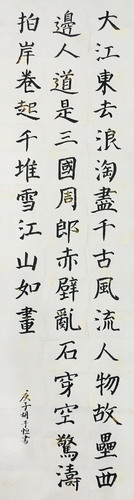 大江東去浪淘盡千古風流人物故壘西
邊人道是三國周郎赤壁亂石穿空驚濤
拍岸卷起千堆雪江山如畫
庚子胡子恒書